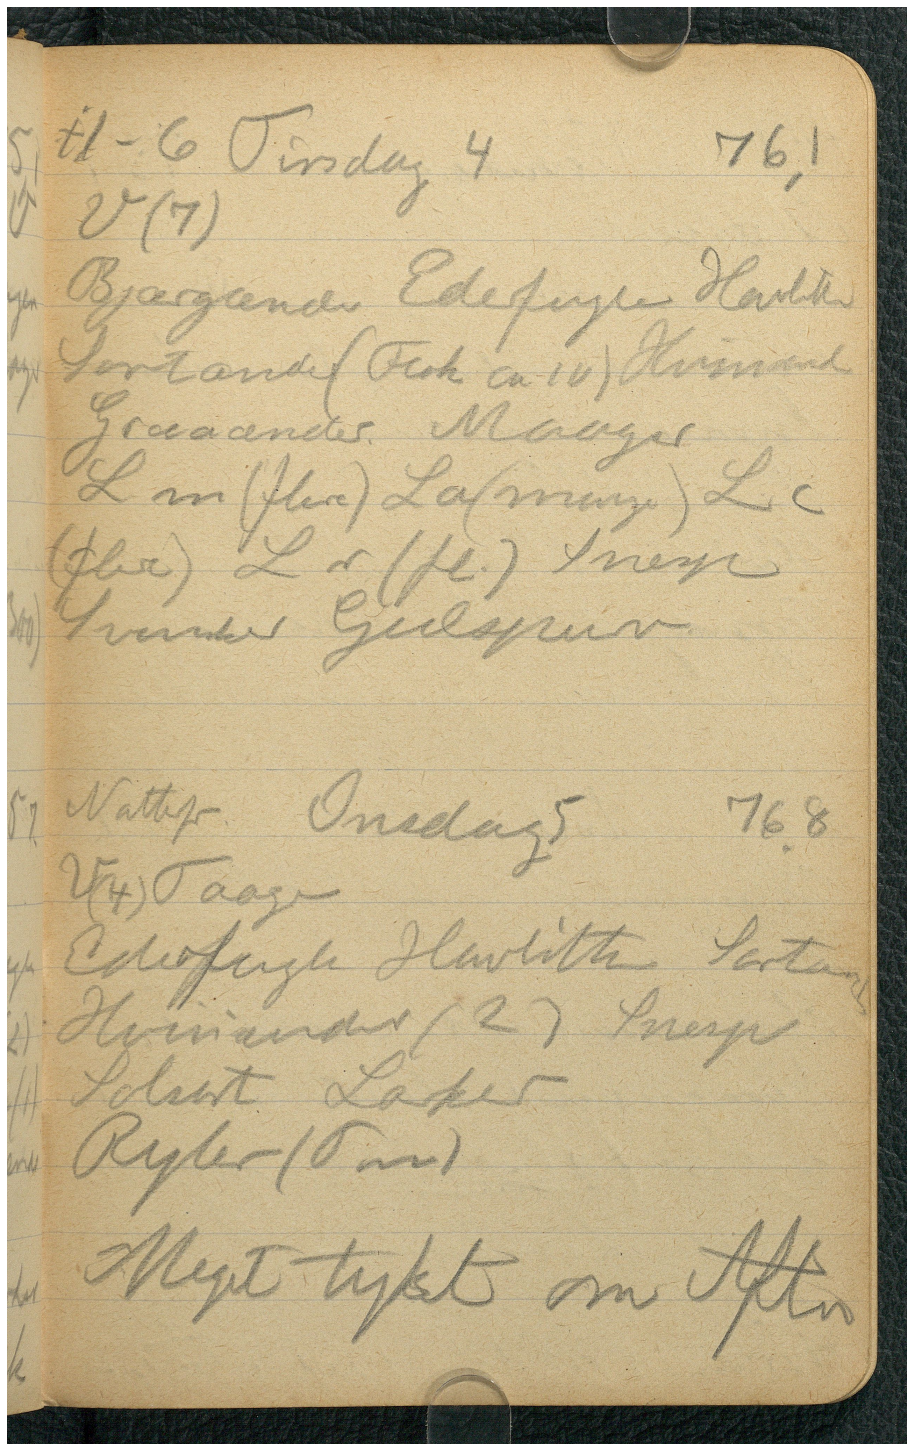 +1 - 6 Tirsdag 4 76,1
V (7)
Bjærgænder Ederfugle Havlitter
Sortænder (Flok ca 10) Hvinænd
Graaænder. Maager
L m (flere) L a (mange) L. c
(flere) L r (fl.) Snesp
Svaner Gulspurv
Nattefr. Onsdag 5 76.8
V(4) Taage
Ederfugle Havlitter Sortænd
Hvinænder (2) Snesp
Solsort Lærker
Ryler (T m)
Meget tykt om Aften